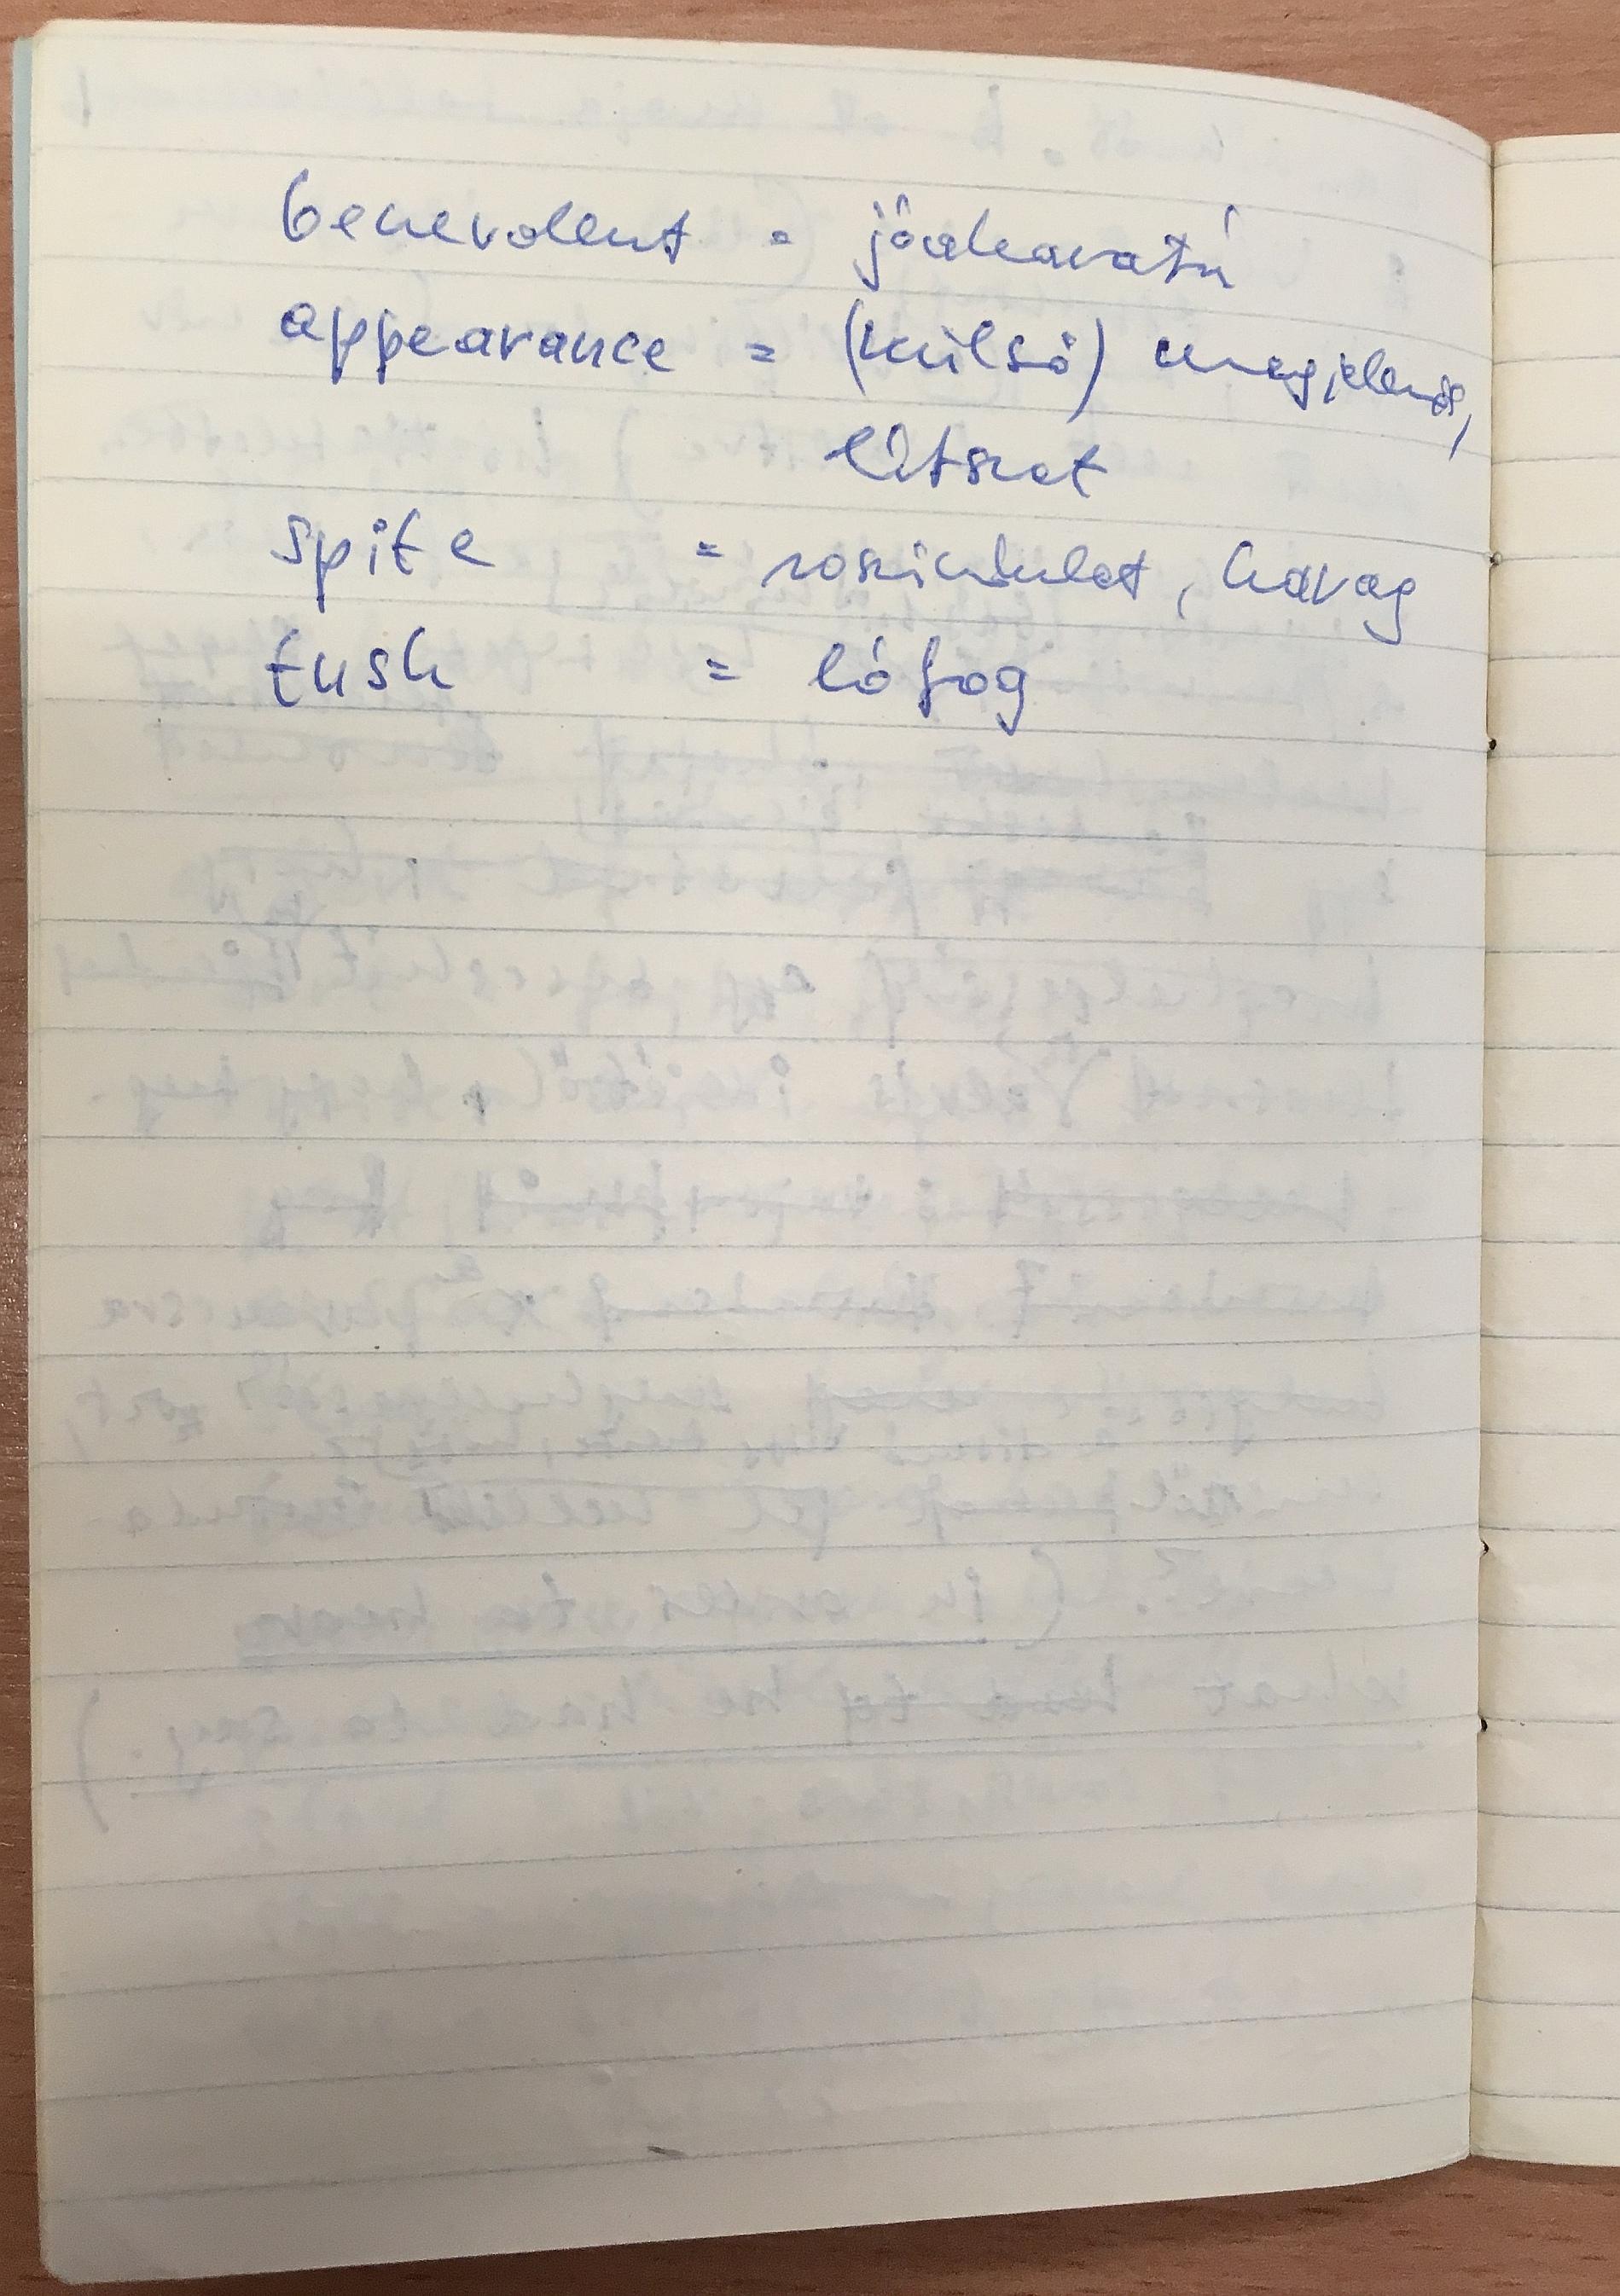 benevolent = jóakaratú
appearance = (külső) megjelenés,
látszat
spite = rosszindulat, harag
tush = lófog